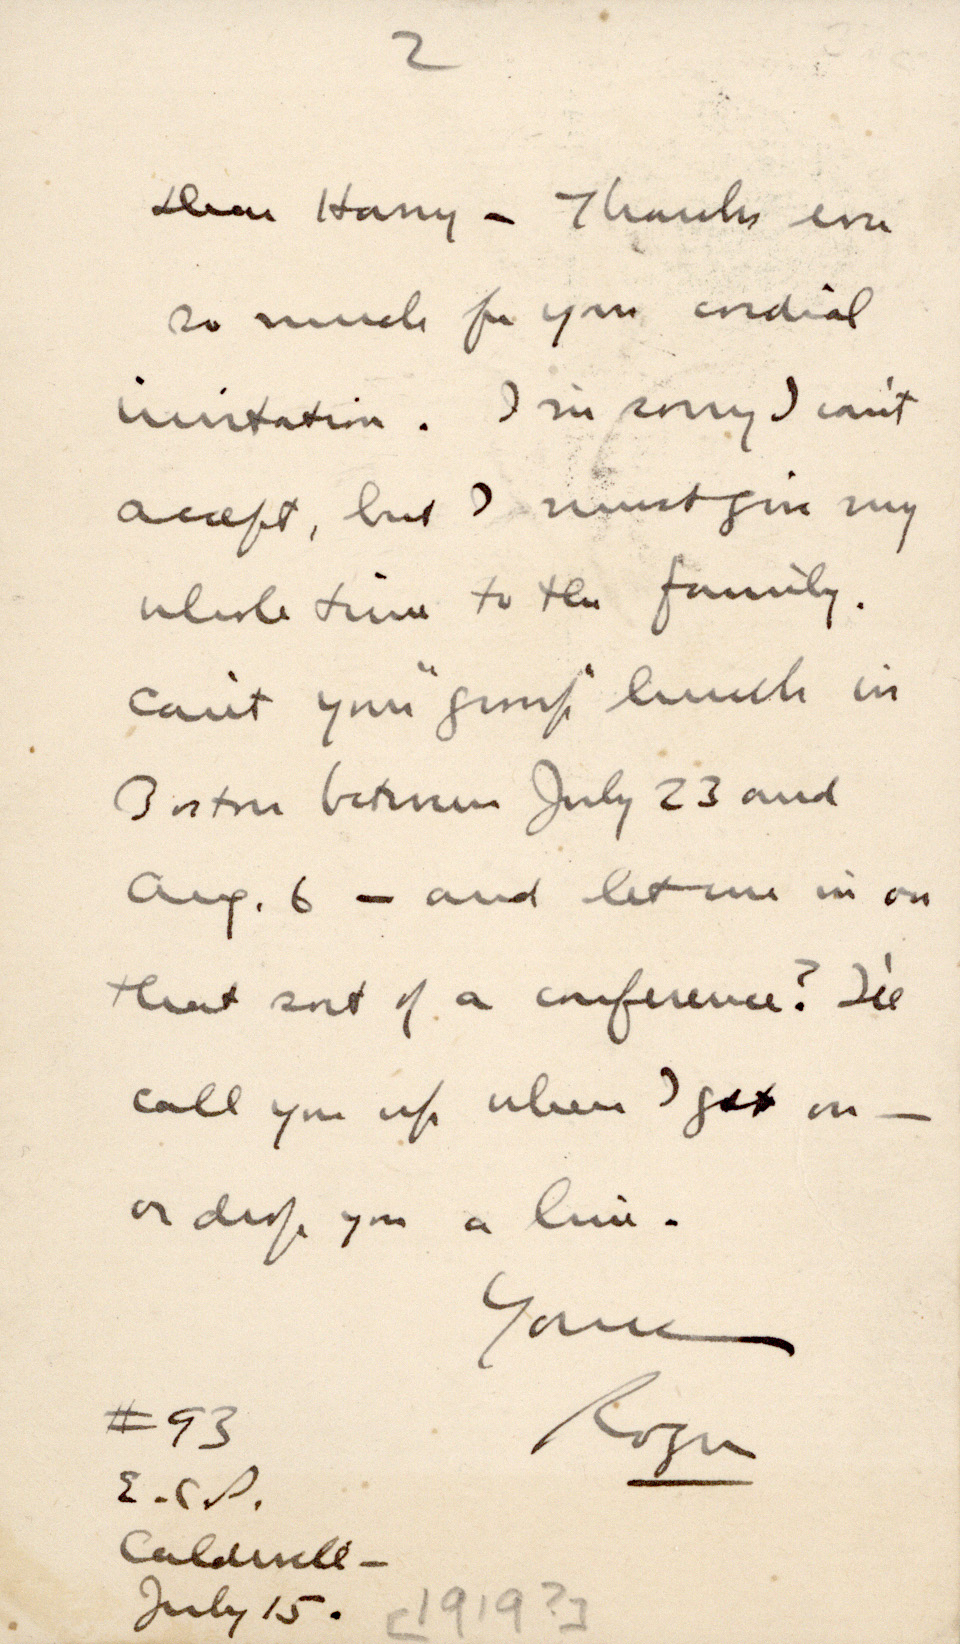 2
Dear Harry – Thanks ever
so much for your cordial
invitation. I'm sorry I can't
accept, but I must give my
whole time to the family.
Can't your "group" lunch in
Boston between July 23 and
Aug. 6 – and let me in on
that sort of a conference? I'll
call you up when I get on –
or drop you a line.
Yours
Roger
#93
Caldwell –
July 15. [1919?]